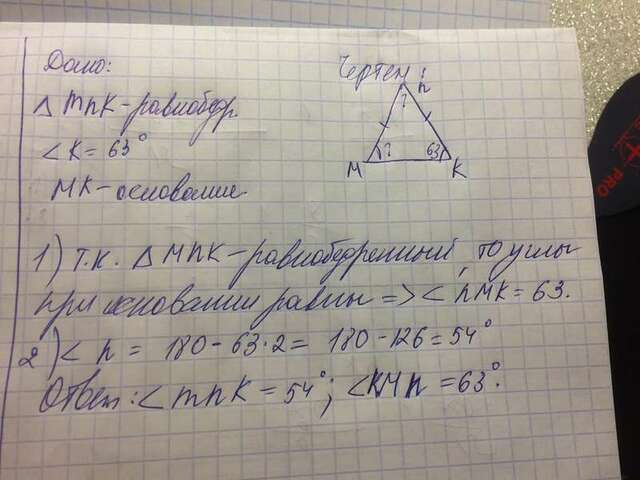 Дано:
Δ MnK - равнобедр.
< K = 63°
MK - основание
Чертёж:
n
?
M
?
63
K
1) Т.к. Δ MnK - равнобедренный, то углы
при основании равны => < nMK = 63.
2) < n = 180 - 63·2 = 180 - 126 = 54°
Ответ: < mnK = 54°; < KMn = 63°.
PRO